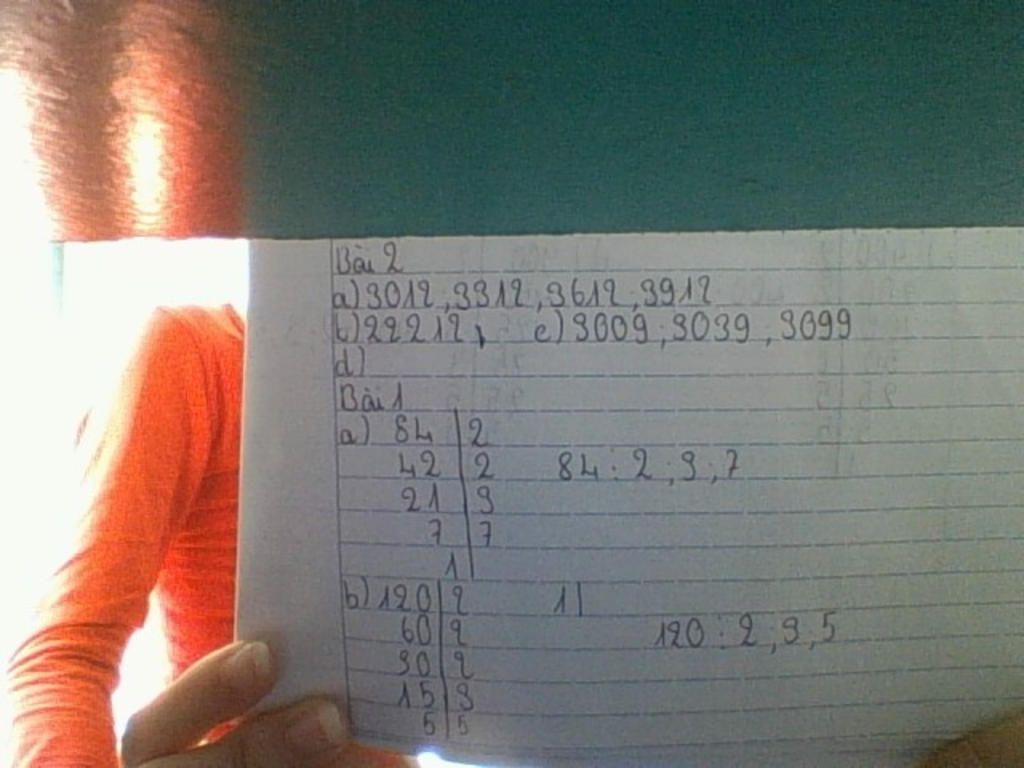 Bài 2
a) 3012, 3312, 3612, 3912
b) 22212, c) 3009; 3039; 3099
d)
Bài 1
a) 84 | 2
42 | 2 84 : 2 ; 3 ; 7
21 | 3
7 | 7
1
b) 120 | 2 1
60 | 2 120 : 2 ; 3 ; 5
30 | 2
15 | 3
5 | 5